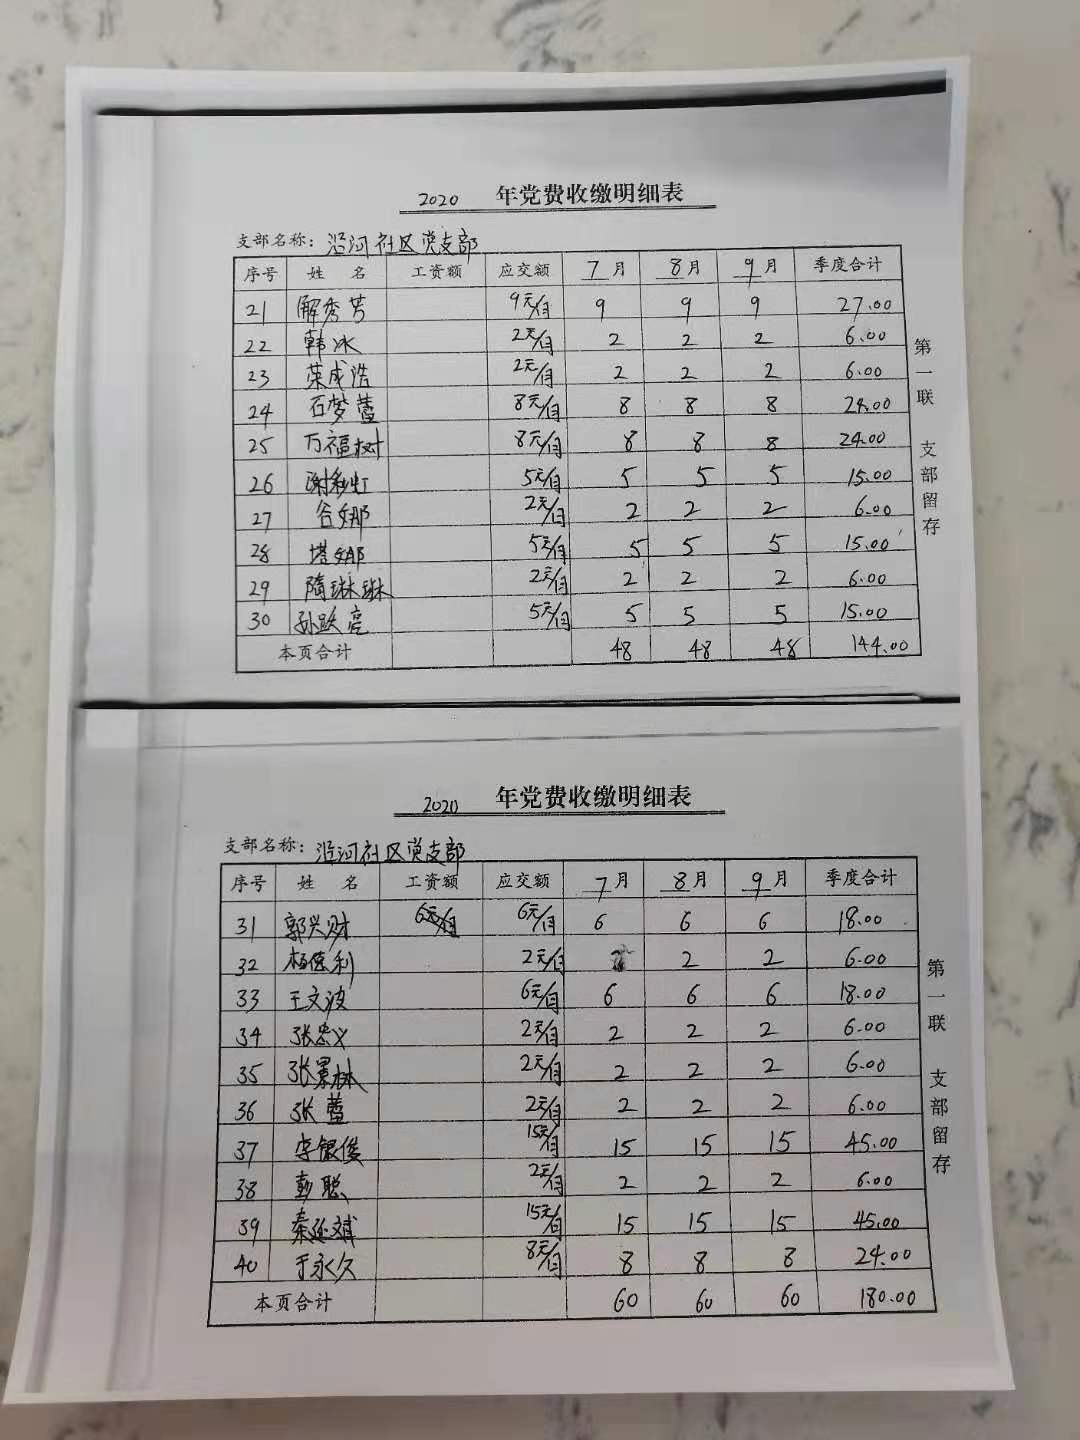 2020 年党费收缴明细表
支部名称：沿河社区党支部
序号 姓 名 工资额 应交额 7月 8月 9月 季度合计
21 解秀芳 9元/月 9 9 9 27.00
22 韩冰 2元/月 2 2 2 6.00
23 荣成浩 2元/月 2 2 2 6.00
24 石梦萱 8元/月 8 8 8 24.00
25 万福树 8元/月 8 8 8 24.00
26 谢彩虹 5元/月 5 5 5 15.00
27 谷娜 2元/月 2 2 2 6.00
28 塔娜 5元/月 5 5 5 15.00
29 隋琳琳 2元/月 2 2 2 6.00
30 孙跃亮 5元/月 5 5 5 15.00
本页合计 48 48 48 144.00
第一联 支部留存
2020 年党费收缴明细表
支部名称：沿河社区党支部
序号 姓 名 工资额 应交额 7月 8月 9月 季度合计
31 郭兴财 6元/月 6元/月 6 6 6 18.00
32 杨德利 2元/月 2 2 6.00
33 王文波 6元/月 6 6 6 18.00
34 张忠义 2元/月 2 2 2 6.00
35 张景林 2元/月 2 2 2 6.00
36 张萱 2元/月 2 2 2 6.00
37 李银俊 15元/月 15 15 15 45.00
38 彭聪 2元/月 2 2 2 6.00
39 秦延斌 15元/月 15 15 15 45.00
40 于永久 8元/月 8 8 8 24.00
本页合计 60 60 60 180.00
第一联 支部留存